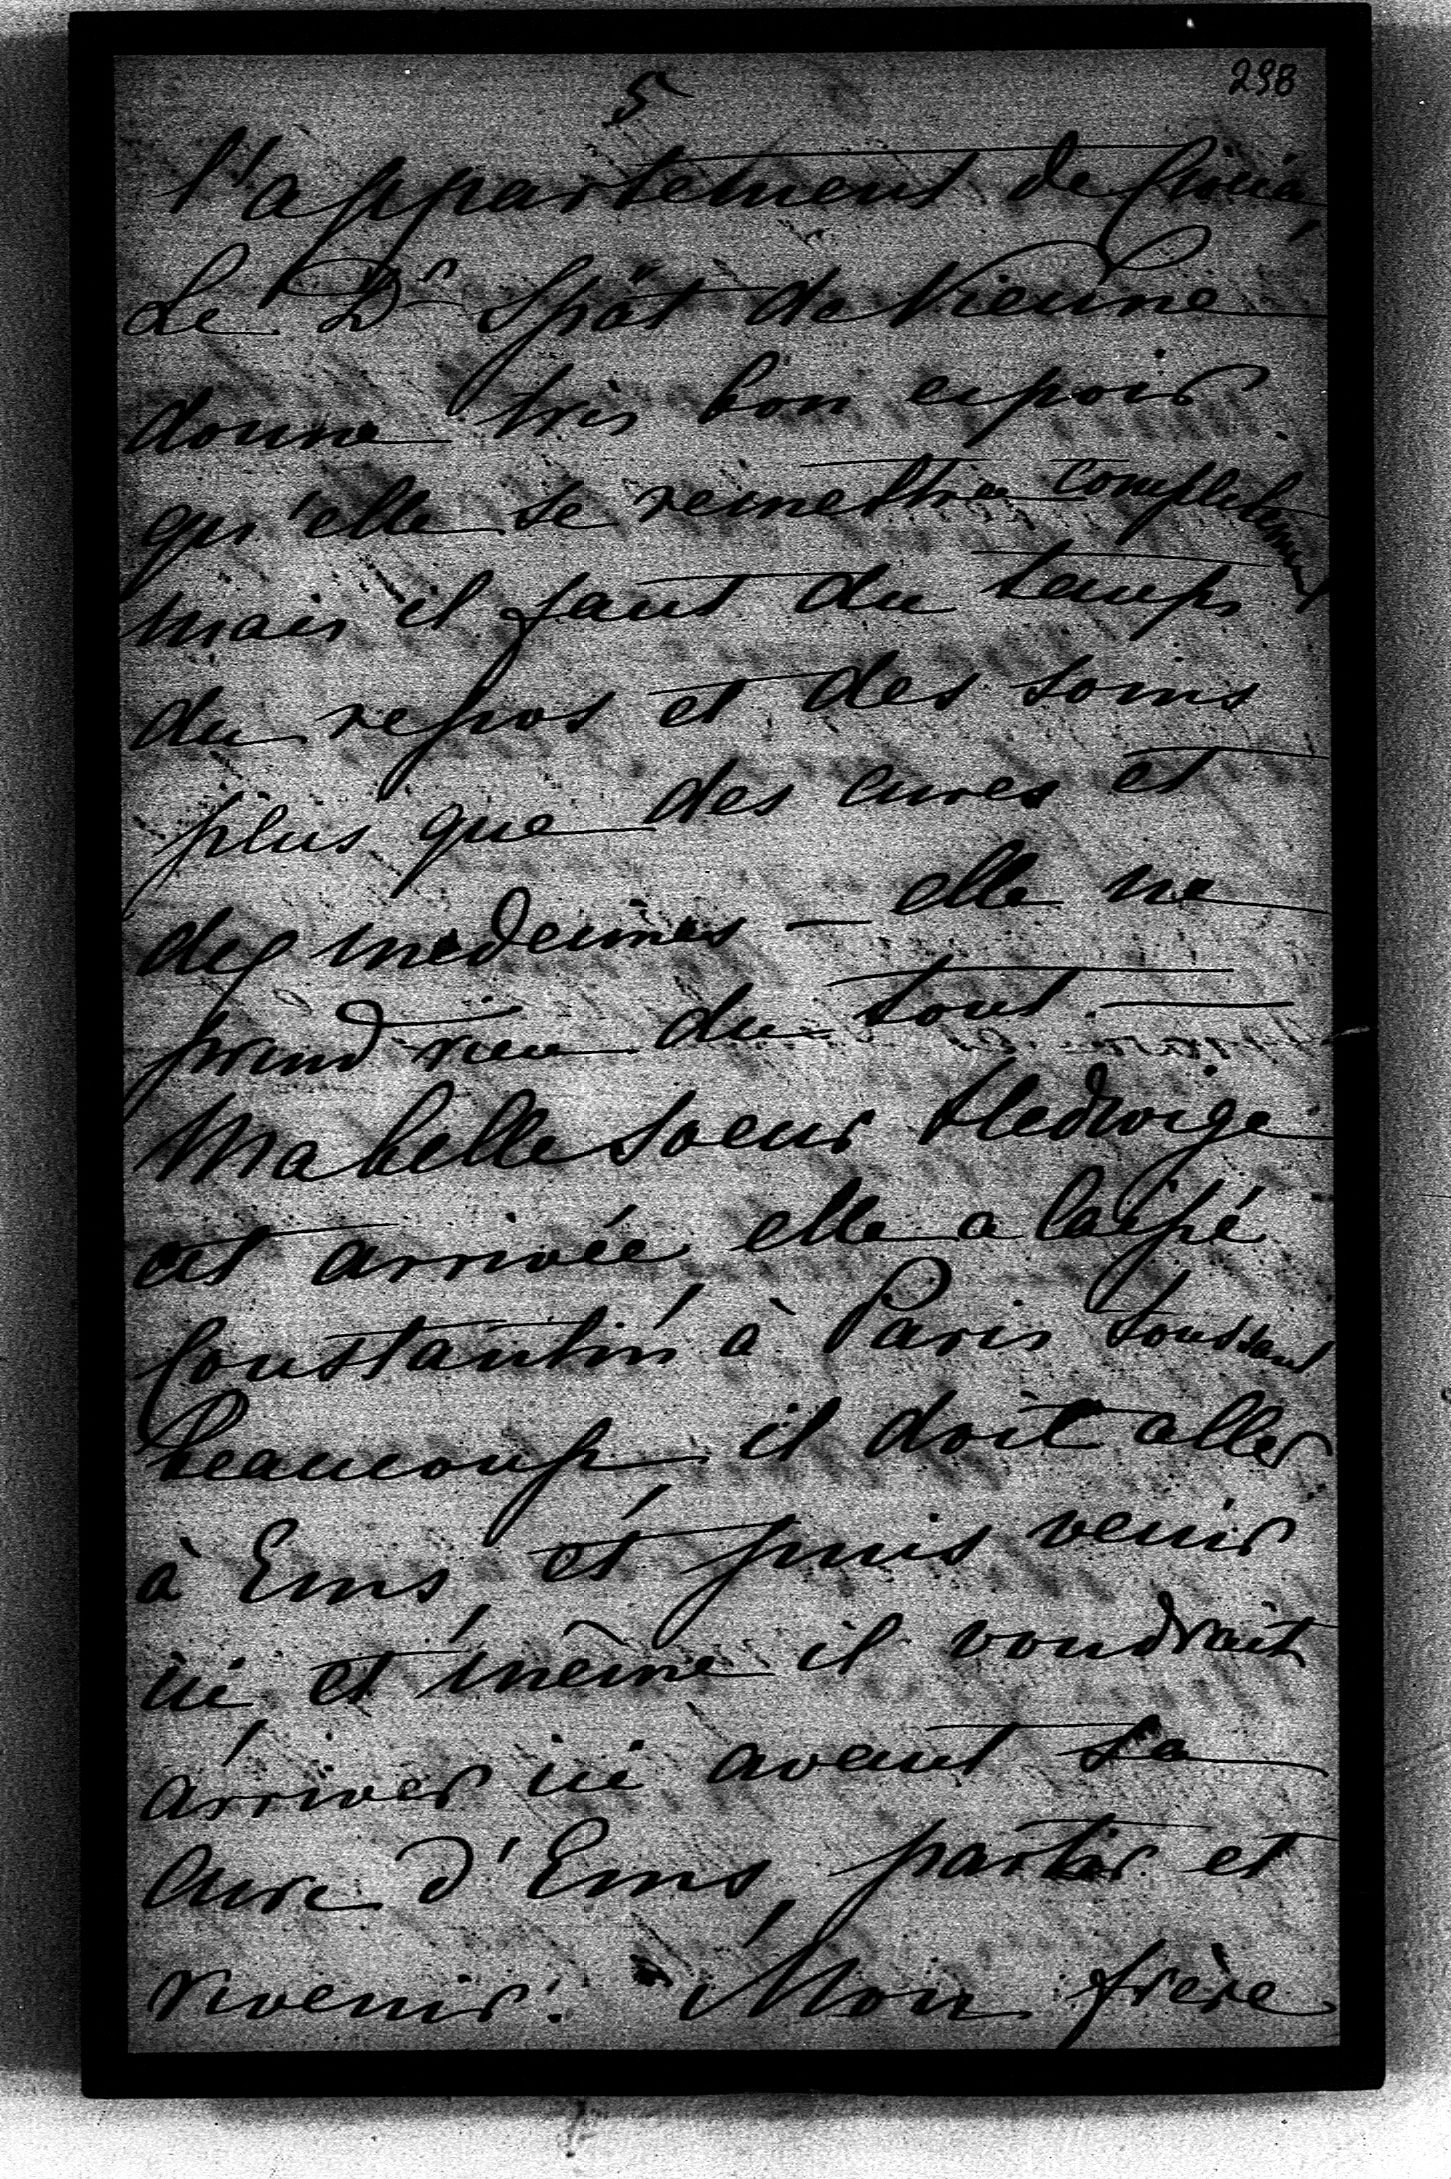 298
5
l'appartement de
Le Dr Spät de Vienne
donne très bon espoir
qu'elle se remettra complètement
mais il faut du temps
du repos et des soins
plus que des cures et
des medecines — elle ne
prend rien du tout. —
Ma belle soeur Hedwige
est arrivée elle a laissé
Constantin à Paris toussant
beaucoup il doit aller
à Ems et puis venir
ici et même il voudrait
arriver ici avant sa
Cure d'Ems, partir et
revenir. Mon frère